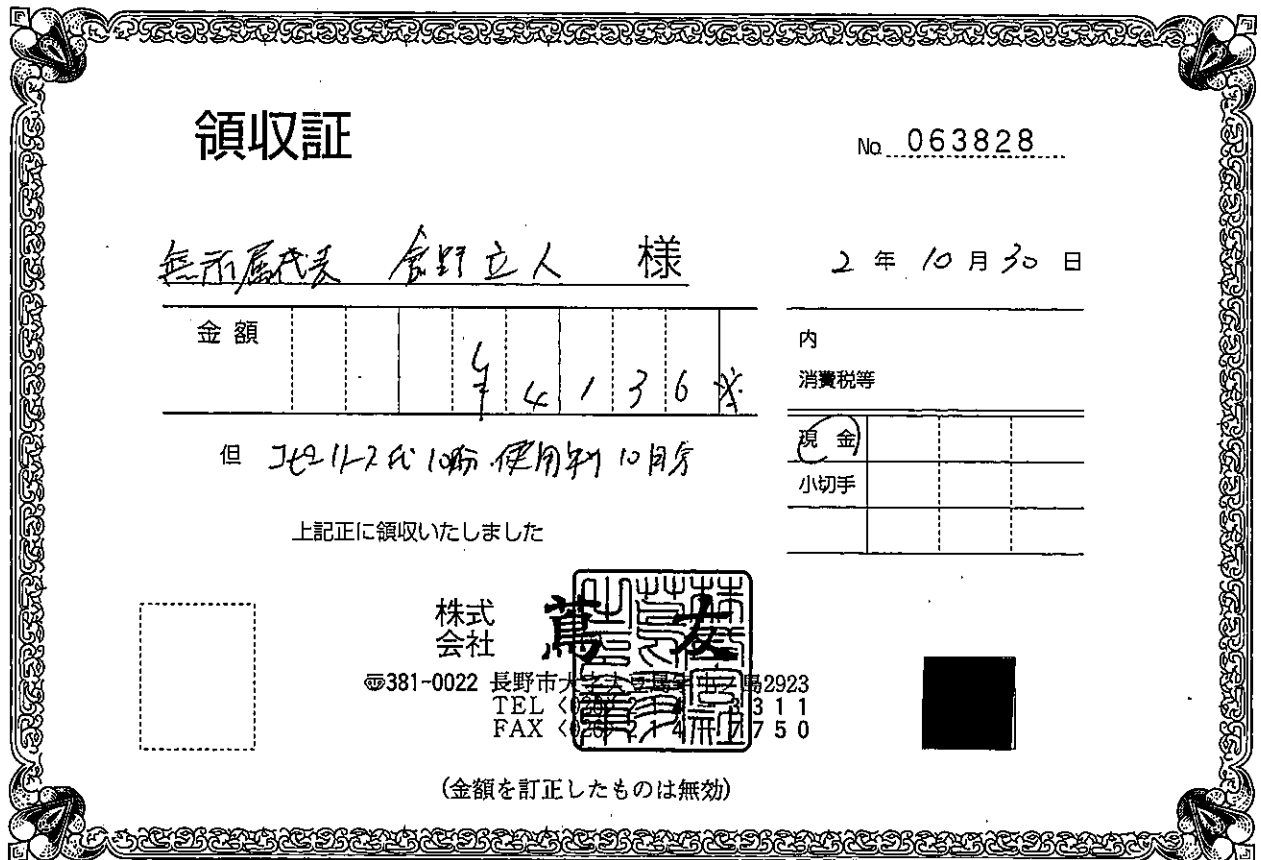 領収証
No. 063828
無所属代表 倉野立人 様
2 年 10 月 30 日
金額 ¥4136※
内
消費税等
現金
小切手
但 コピーリース代 10月分 使用料 10月分
上記正に領収いたしました
株式会社 蔦友
〒381-0022 長野市大字大豆島 2923
TEL <026> 3311
FAX <026> 214-7750
(金額を訂正したものは無効)